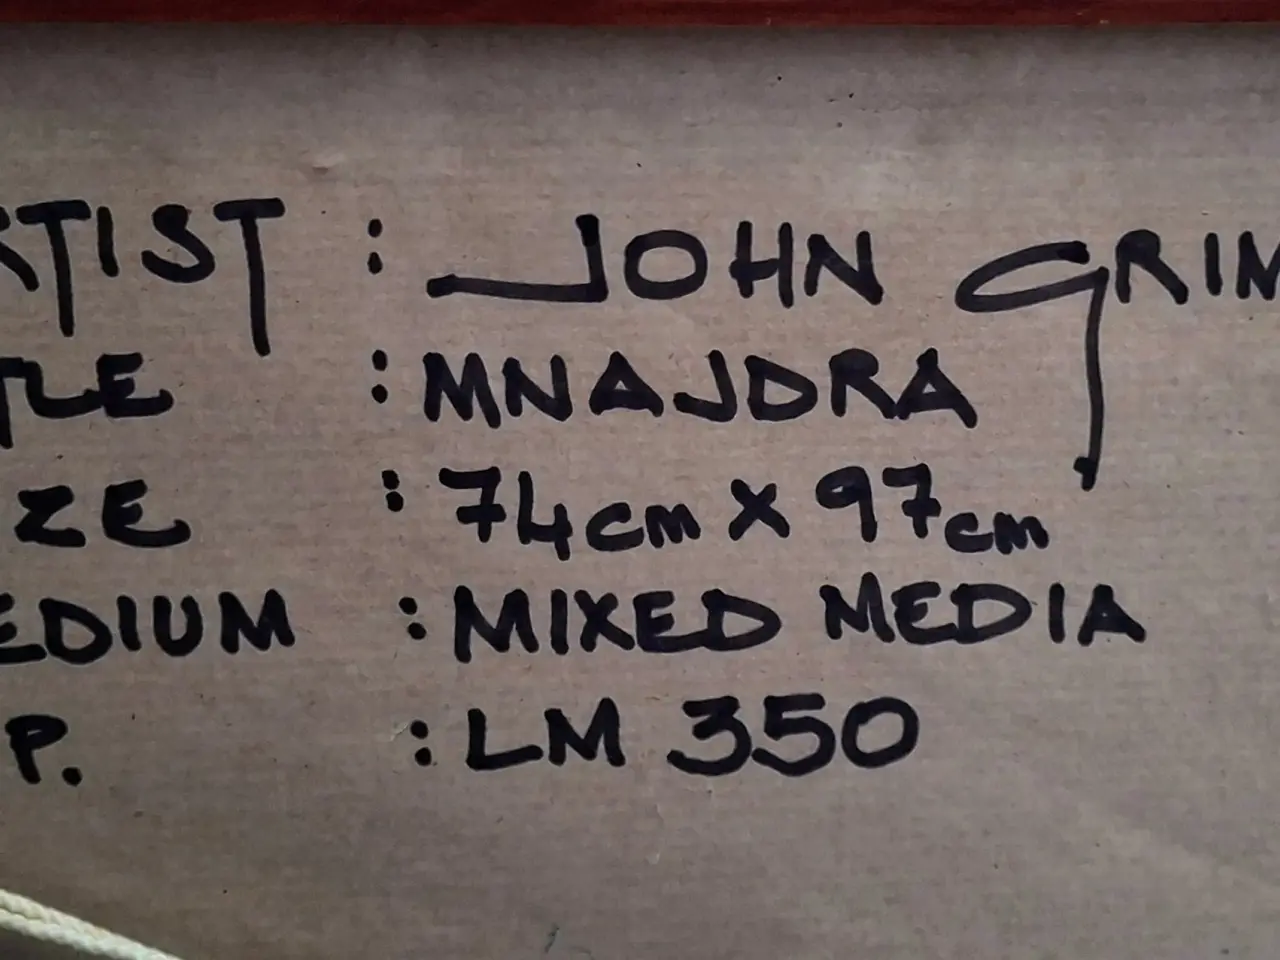 RTIST : JOHN GRIM
TLE : MNAJDRA
ZE : 74cm X 97cm
EDIUM : MIXED MEDIA
P. : LM 350